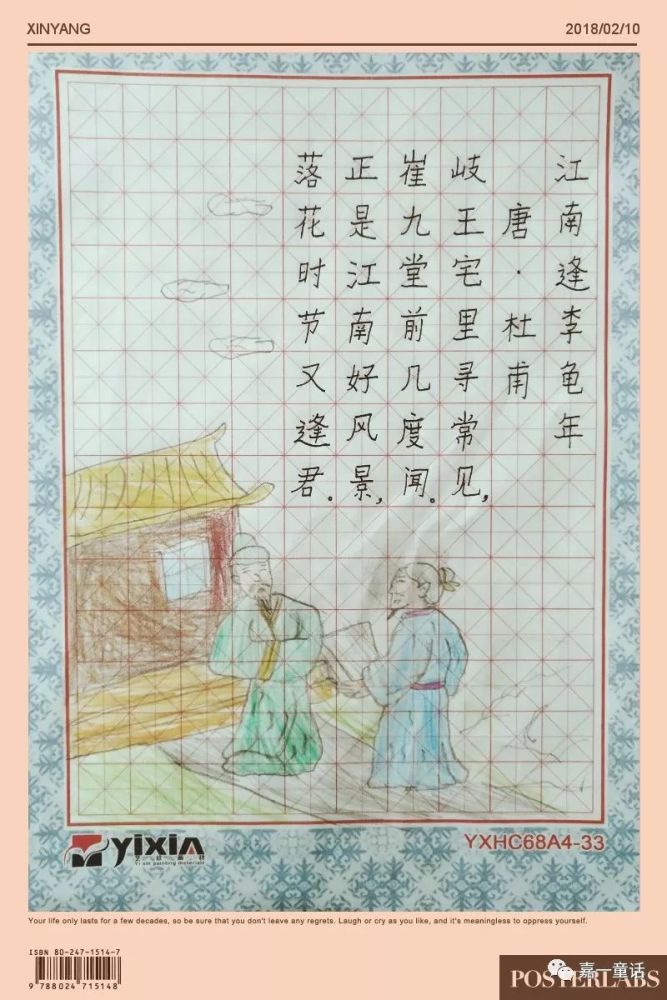 XINYANG
2018/02/10
江南逢李龟年
唐·杜甫
岐王宅里寻常见，
崔九堂前几度闻。
正是江南好风景，
落花时节又逢君。
yixin
YXHC68A4-33
Your life only lasts for a few decades, so be sure that you don't leave any regrets. Laugh or cry as you like, and it's meaningless to oppress yourself.
ISBN 80-247-1514-7
9 788024 715148
POSTERLABS
嘉一童话